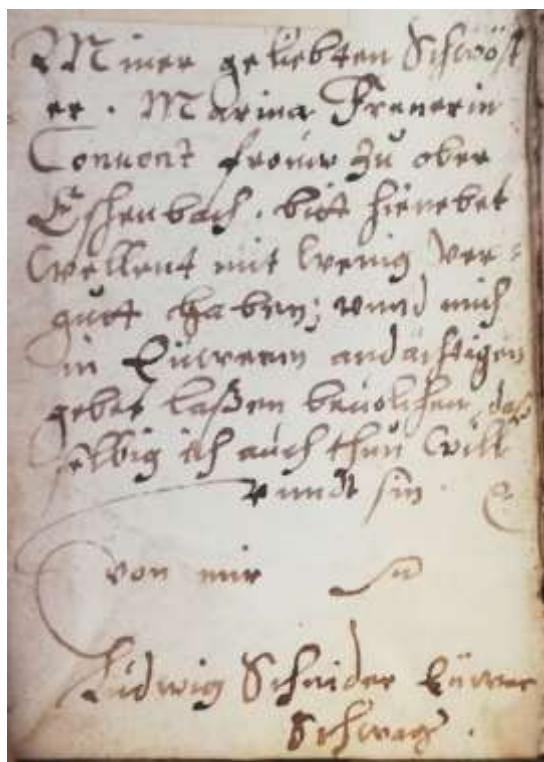 Miner geliebten Schwöst
er. Marina Frenerin
Conuent frouw zu ober
Eschenbach. bitt hienebet
Wellent mit wenig ver=
gutt haben; vnnd mich
in Eüwerem andächtigen
gebet laßen beuolchen, daß
selbig ich auch thun will
vnndt sin.
von mir
Ludwig Schnider Eüwer
Schwag.